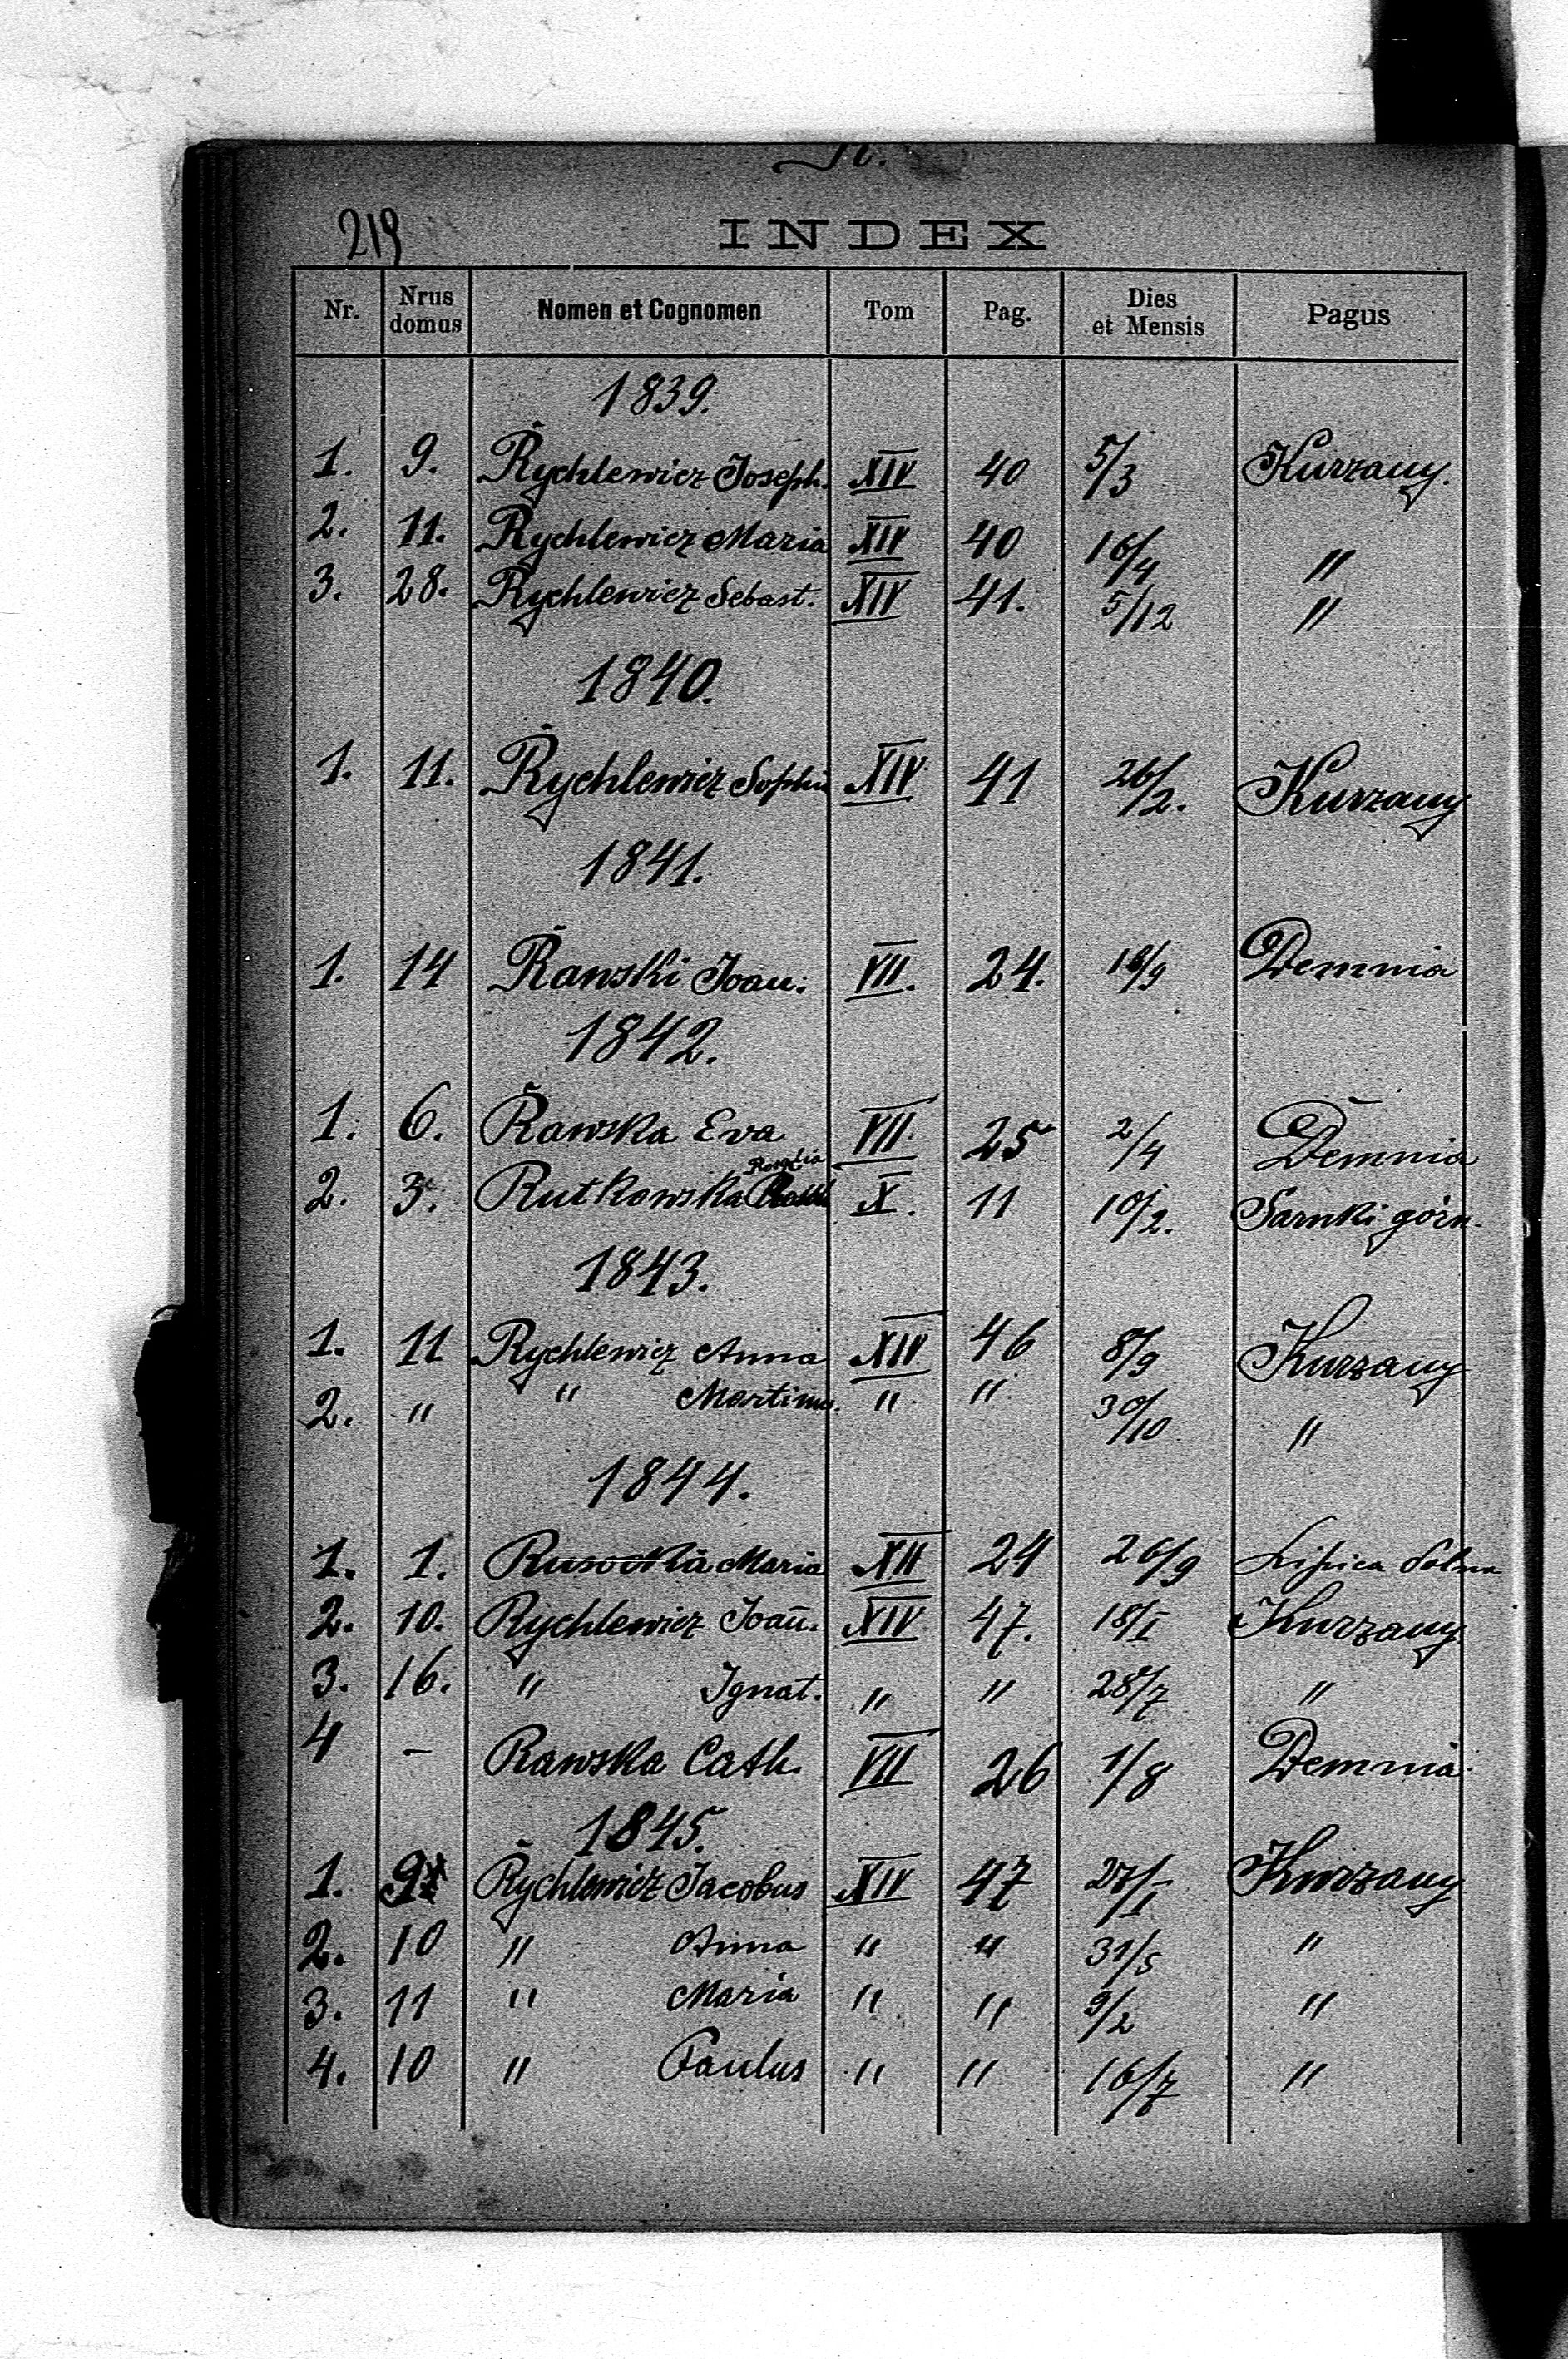 R.
219
INDEX
Nr. Nrus domus Nomen et Cognomen Tom Pag. Dies et Mensis Pagus
1839.
1. 9. Rychlewicz Joseph. XIV 40 5/3 Kurzany.
2. 11. Rychlewicz Maria XIV 40 16/4 "
3. 28. Rychlewicz Sebast. XIV 41. 5/12 "
1840.
1. 11. Rychlewicz Sophia XIV 41 26/2. Kurzany
1841.
1. 14 Rawski Joan. VII. 24. 18/9 Demnia
1842.
1. 6. Rawska Eva VII. 25 2/4 Demnia
Rosalia
2. 3. Rutkowska X. 11 10/2. Sarnki górn.
1843.
1. 11 Rychlewicz Anna XIV 46 8/9 Kurzany
2. " " Martinus. " " 30/10 "
1844.
1. 1. Rusocka Maria XII 24 26/9 Lipica dolna
2. 10. Rychlewicz Joan̄. XIV 47. 18/I Kurzany
3. 16. " Ignat. " " 28/7 "
4 – Rawska Cath. VII 26 1/8 Demnia
1845.
1. 9 Rychlewicz Jacobus XIV 47 27/I Kurzany
2. 10 " Anna " " 31/5 "
3. 11 " Maria " " 9/2 "
4. 10 " Paulus " " 16/7 "